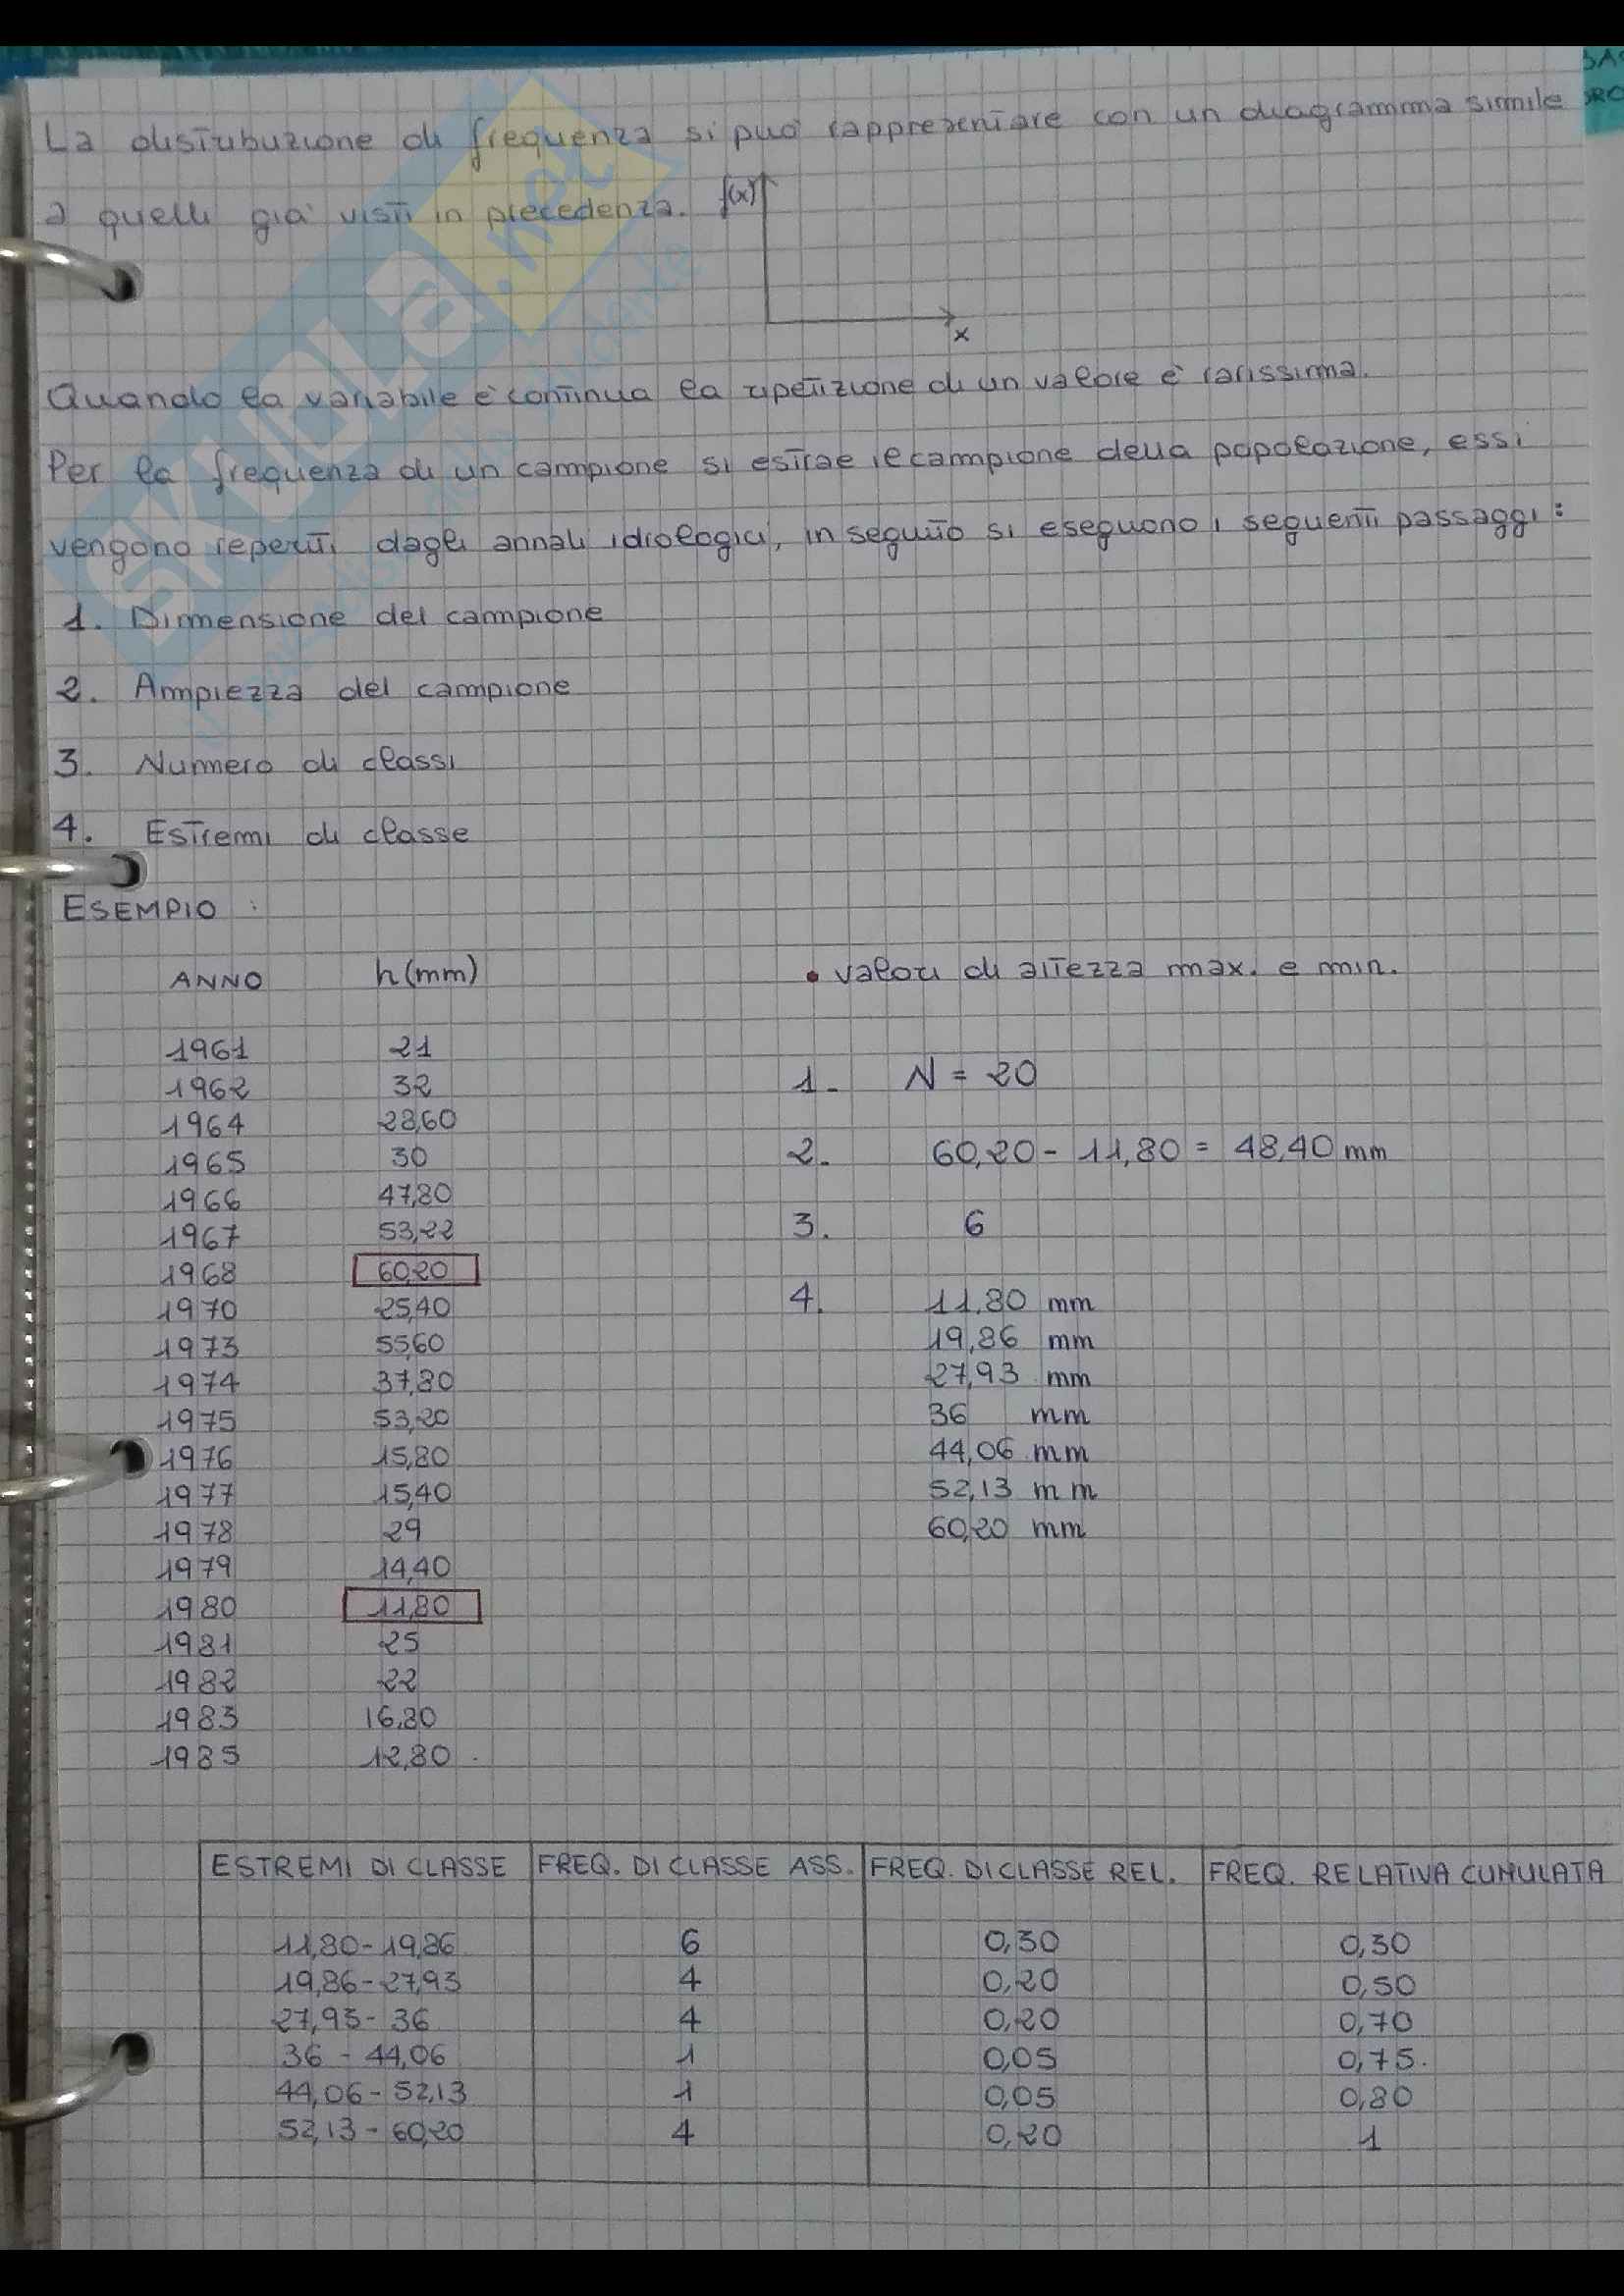 La distribuzione di frequenza si può rappresentare con un diagramma simile
a quelli già visti in precedenza. f(x)
x
Quando la variabile è continua la ripetizione di un valore è rarissima.
Per la frequenza di un campione si estrae il campione della popolazione, essi
vengono reperiti dagli annali idrologici, in seguito si eseguono i seguenti passaggi:
1. Dimensione del campione
2. Ampiezza del campione
3. Numero di classi
4. Estremi di classe
ESEMPIO :
ANNO h(mm) • valori di altezza max. e min.
1961 21
1962 32 1. N = 20
1964 28,60
1965 30 2. 60,20 - 11,80 = 48,40 mm
1966 47,80
1967 53,22 3. 6
1968 60,20
1970 25,40 4. 11,80 mm
1973 55,60 19,86 mm
1974 37,80 27,93 mm
1975 53,20 36 mm
1976 15,80 44,06 mm
1977 15,40 52,13 mm
1978 29 60,20 mm
1979 14,40
1980 11,80
1981 25
1982 22
1983 16,80
1985 12,80
ESTREMI DI CLASSE FREQ. DI CLASSE ASS. FREQ. DI CLASSE REL. FREQ. RELATIVA CUMULATA
11,80 - 19,86 6 0,30 0,30
19,86 - 27,93 4 0,20 0,50
27,93 - 36 4 0,20 0,70
36 - 44,06 1 0,05 0,75
44,06 - 52,13 1 0,05 0,80
52,13 - 60,20 4 0,20 1
SKUOLA.net